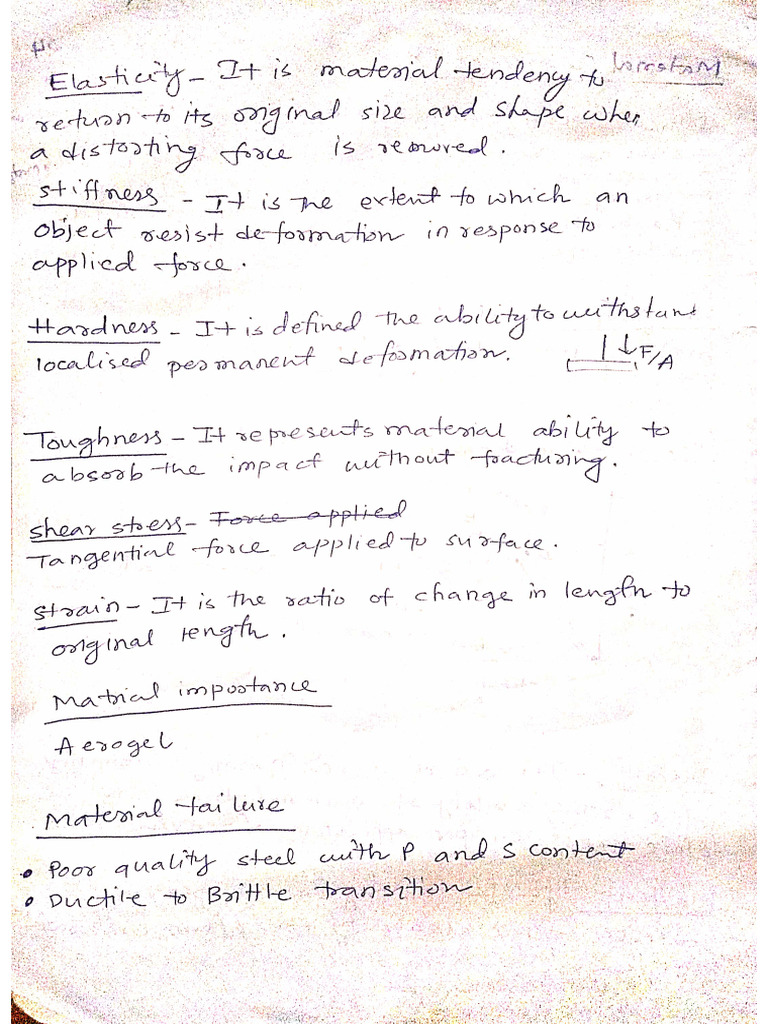 Elasticity - It is material tendency to
return to its original size and shape when
a distorting force is removed.
stiffness - It is the extent to which an
object resist deformation in response to
applied force.
Hardness - It is defined the ability to withstand
localised permanent deformation.
F/A
Toughness - It represents material ability to
absorb the impact without fracturing.
shear stress - Force applied
Tangential force applied to surface.
strain - It is the ratio of change in length to
original length.
Matrial importance
Aerogel
Material failure
• Poor quality steel with P and S content
• Ductile to Brittle transition